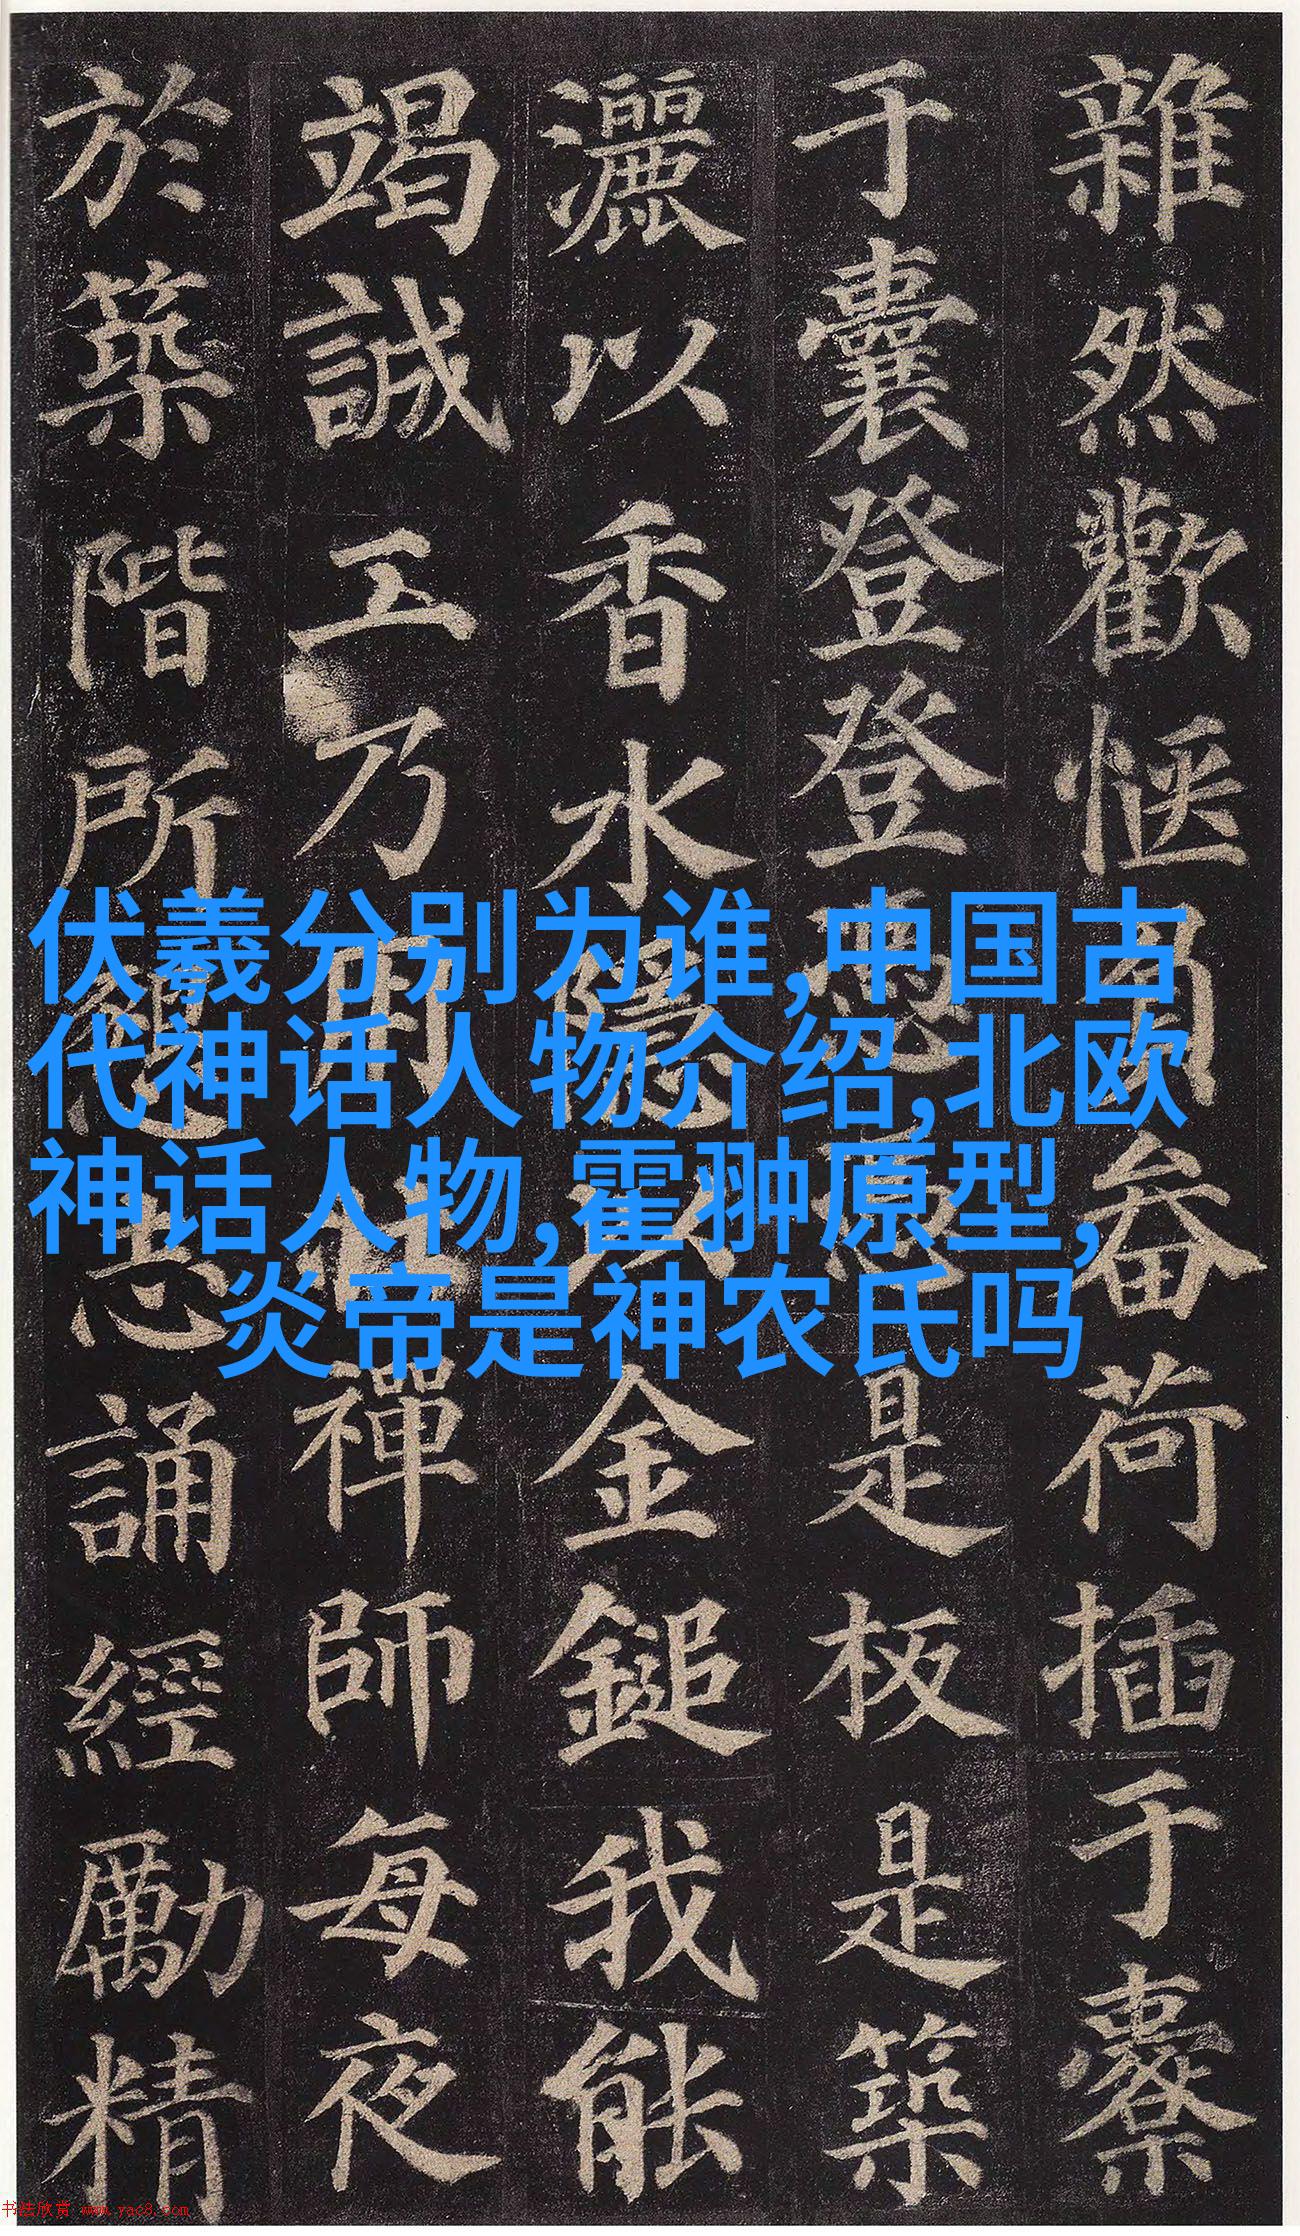 雜然歡愜負畚荷插于橐
于囊登登憑憑是板是築
灑以香水隱以金鎚我能
竭誠工乃用壯禪師每夜
於築階所懇志誦經勵精
伏羲分别为谁,中国古
代神话人物介绍,北欧
神话人物,霍翀原型,
炎帝是神农氏吗
书法欣赏 www.yac8.com